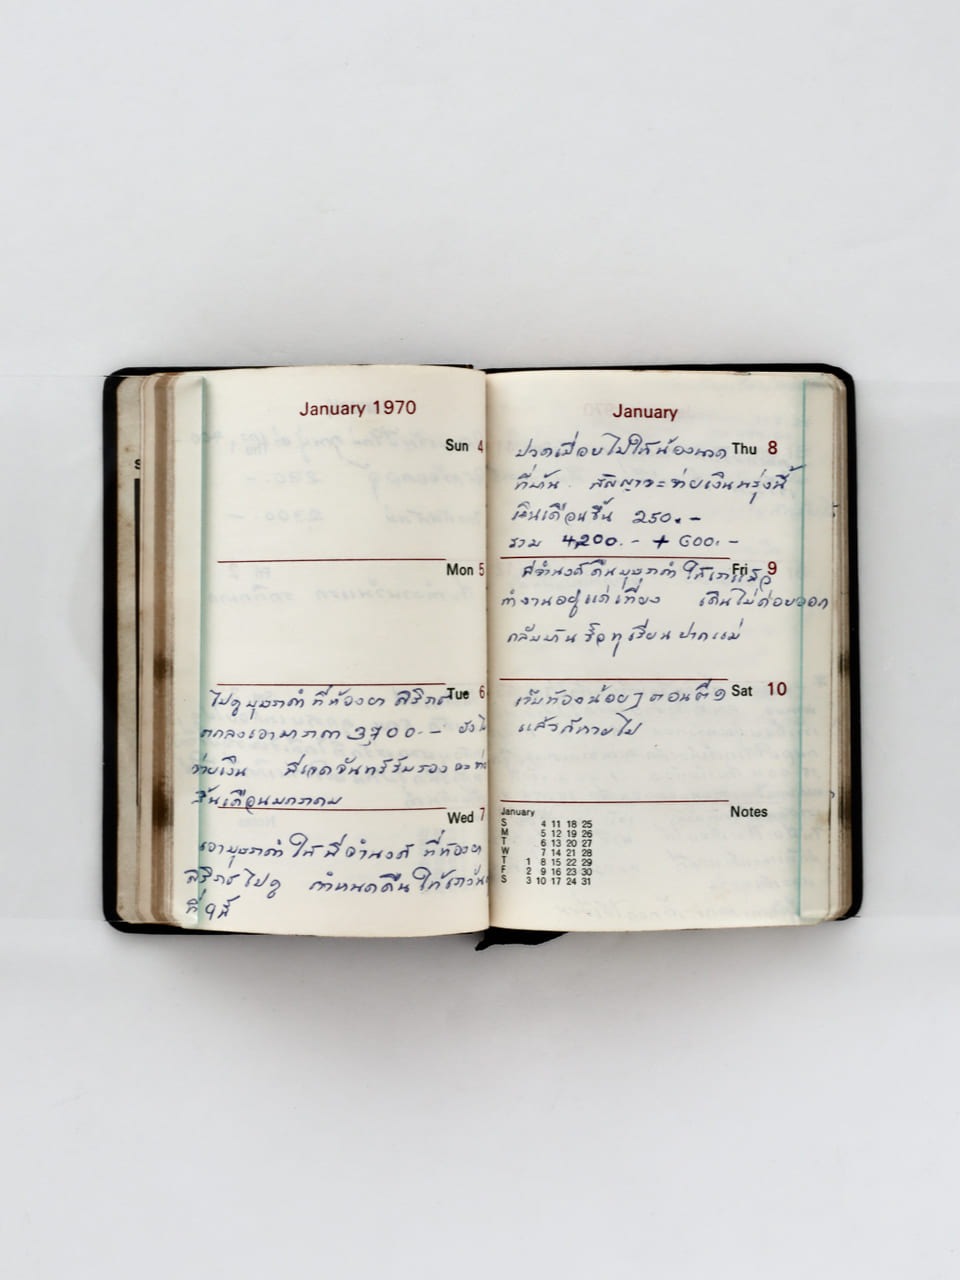 January 1970
Sun 4
Mon 5
Tue 6
ไปดูบุษราคำที่ห้องยา สิริภร
ตกลงเอามาราคา 3,700.- ยังไ
จ่ายเงิน พี่เจดจันทร์รับรอง
สิ้นเดือนมกราคม
Wed 7
เอาบุษราคำให้พี่จำนงค์ที่ห้องยา
สิริภรไปดู กำหนดคืนให้เราวัน
ที่ 9 นี้
January
Thu 8
ปวดเมื่อยไปให้น้องนวด
ที่บ้าน สัญญาจะจ่ายเงินพรุ่งนี้
เงินเดือนขึ้น 250.-
รวม 4,200.- + 600.-
Fri 9
พี่จำนงค์คืนบุษราคำให้เราแล้ว
ทำงานอยู่แค่เที่ยง เดินไม่ค่อยออก
กลับบ้าน ซื้อทุเรียนปากแม่
Sat 10
เจ็บท้องน้อยๆ ตอนตี ๑
แล้วก็หายไป
Notes
January
S 4 11 18 25
M 5 12 19 26
T 6 13 20 27
W 7 14 21 28
T 1 8 15 22 29
F 2 9 16 23 30
S 3 10 17 24 31